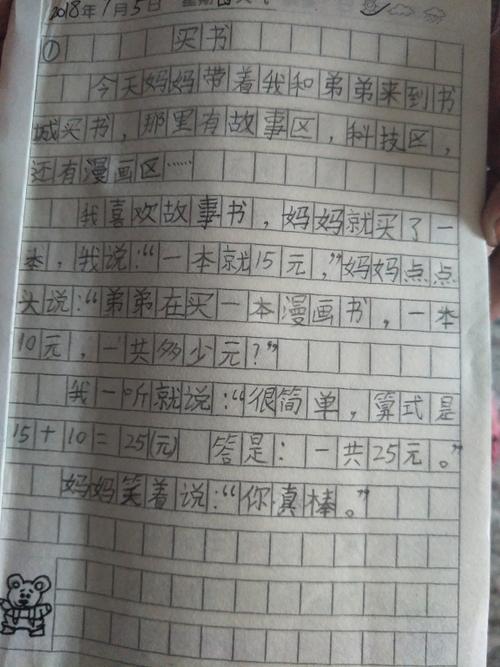 2018年1月5日 星期 天气
① 买书
今天妈妈带着我和弟弟来到书
城买书，那里有故事区，科技区，
还有漫画区……
我喜欢故事书，妈妈就买了一
本，我说：“一本就15元，”妈妈点点
头说：“弟弟在买一本漫画书，一本
10元，一共多少元？”
我一听就说：“很简单，算式是
15＋10＝25(元) 答是：一共25元。”
妈妈笑着说：“你真棒。”